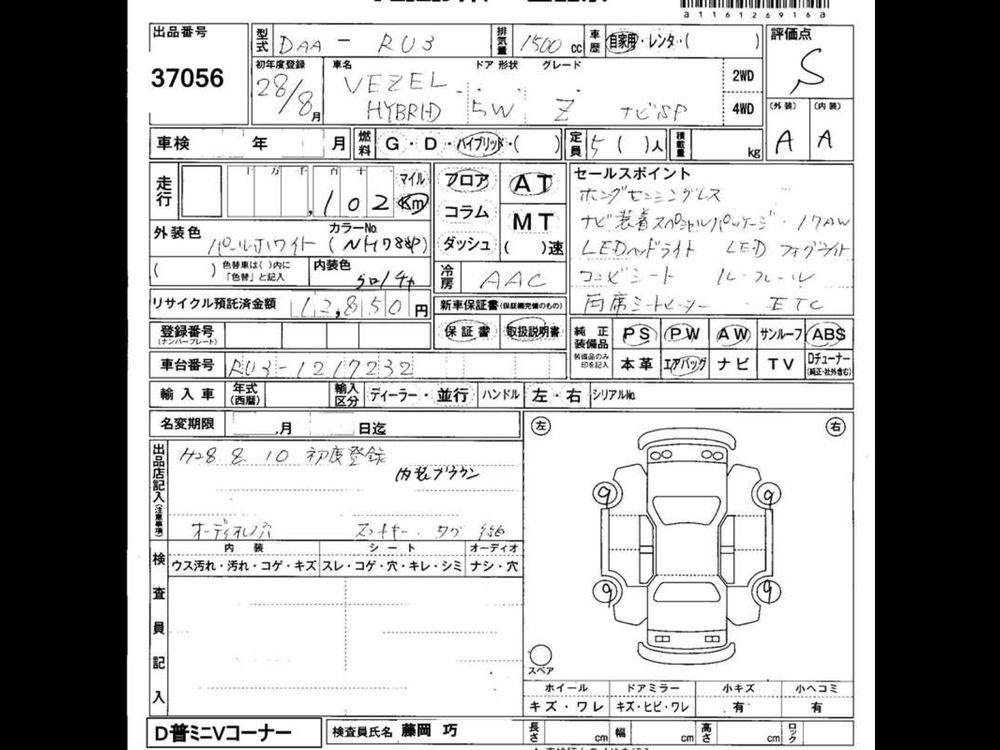 a1161269916a
出品番号
37056
型式 DAA - RU3
排気量 1500 cc
車歴 自家用・レンタ・( )
評価点
S
初年度登録
28/8月
車名 ドア形状 グレード
VEZEL
HYBRID 5W Z ナビSP
2WD
4WD
(外装) (内装)
A A
車検 年 月
燃料 G・D・ハイブリッド・( )
定員 5( )人
積載量 kg
走行 十 万 千 百 十
102
マイル
Km
フロア
コラム
ダッシュ
AT
MT
( )速
セールスポイント
ホンダセンシングレス
ナビ装着スペシャルパッケージ・17AW
LEDヘッドライト LEDフォグライト
コンビシート ルーフレール
両席シートヒーター ETC
外装色 カラーNo.
パールホワイト (NH788P)
( ) 色替車は( )内に「色替」と記入
内装色
冷房 AAC
リサイクル預託済金額 12,850円
新車保証書(保証継続可能のもの)
保証書 取扱説明書
登録番号
(ナンバープレート)
純正装備品
装備品のみ印を記入
PS PW AW サンルーフ ABS
本革 エアバッグ ナビ TV Dチューナー
(純正・社外含む)
車台番号 RU3-1217232
輸入車 年式(西暦) 輸入区分 ディーラー・並行 ハンドル 左・右 シリアルNo.
名変期限 月 日迄
左 右
出品店記入(注意事項)
H28.8.10 初度登録
内装ブラウン
オーディオレス穴
検査員記入
内装 シート オーディオ
ウス汚れ・汚れ・コゲ・キズ スレ・コゲ・穴・キレ・シミ ナシ・穴
9 9
9 9
スペア
ホイール ドアミラー 小キズ 小ヘコミ
キズ・ワレ キズ・ヒビ・ワレ 有 有
D普ミニVコーナー
検査員氏名 藤岡 巧
長さ cm 幅 cm 高さ cm ロック